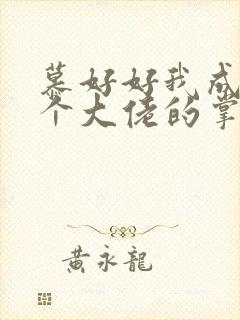 慕好好我成
个大佬的掌
黄永龙